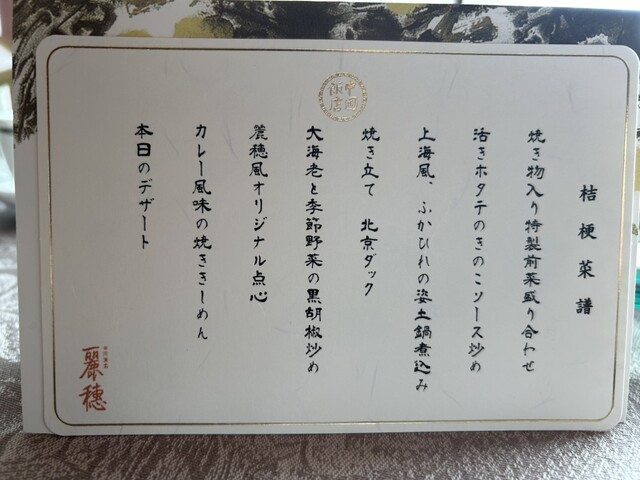 中国飯店
桔梗菜譜
焼き物入り特製前菜盛り合わせ
活きホタテのきのこソース炒め
上海風、ふかひれの姿土鍋煮込み
焼き立て　北京ダック
大海老と季節野菜の黒胡椒炒め
麗穂風オリジナル点心
カレー風味の焼ききしめん
本日のデザート
麗穂